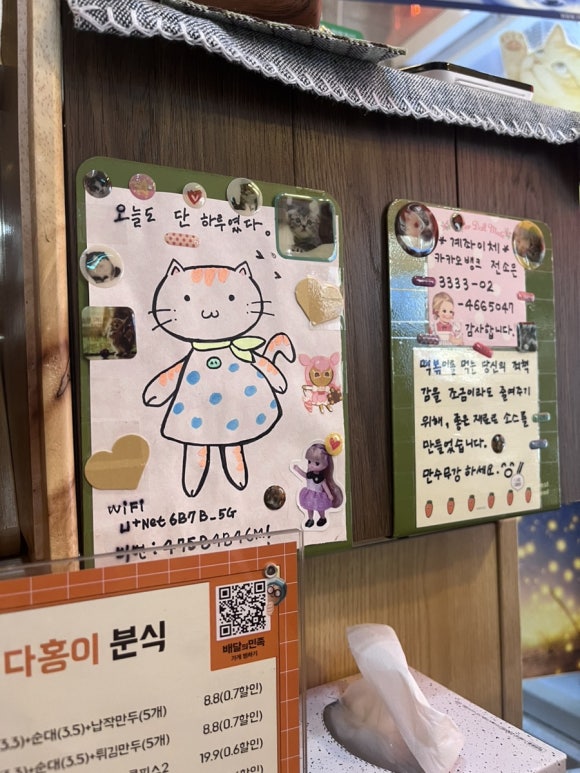 오늘도 단 하루였다。
WiFi
U+Net 6B7B_5G
비번 :
* 계좌이체 *
카카오뱅크 전소은
3333-02
-4665047
감사합니다.
떡볶이를 먹는 당신의 죄책
감을 조금이라도 줄여주기
위해, 좋은 재료로 소스를
만들었습니다.
만수무강 하세요.
다홍이 분식
배달의민족
가게 찜하기
3.3)+순대(3.5)+납작만두(5개) 8.8(0.7할인)
3.3)+순대(3.5)+튀김만두(5개) 8.8(0.7할인)
19.9(0.6할인)